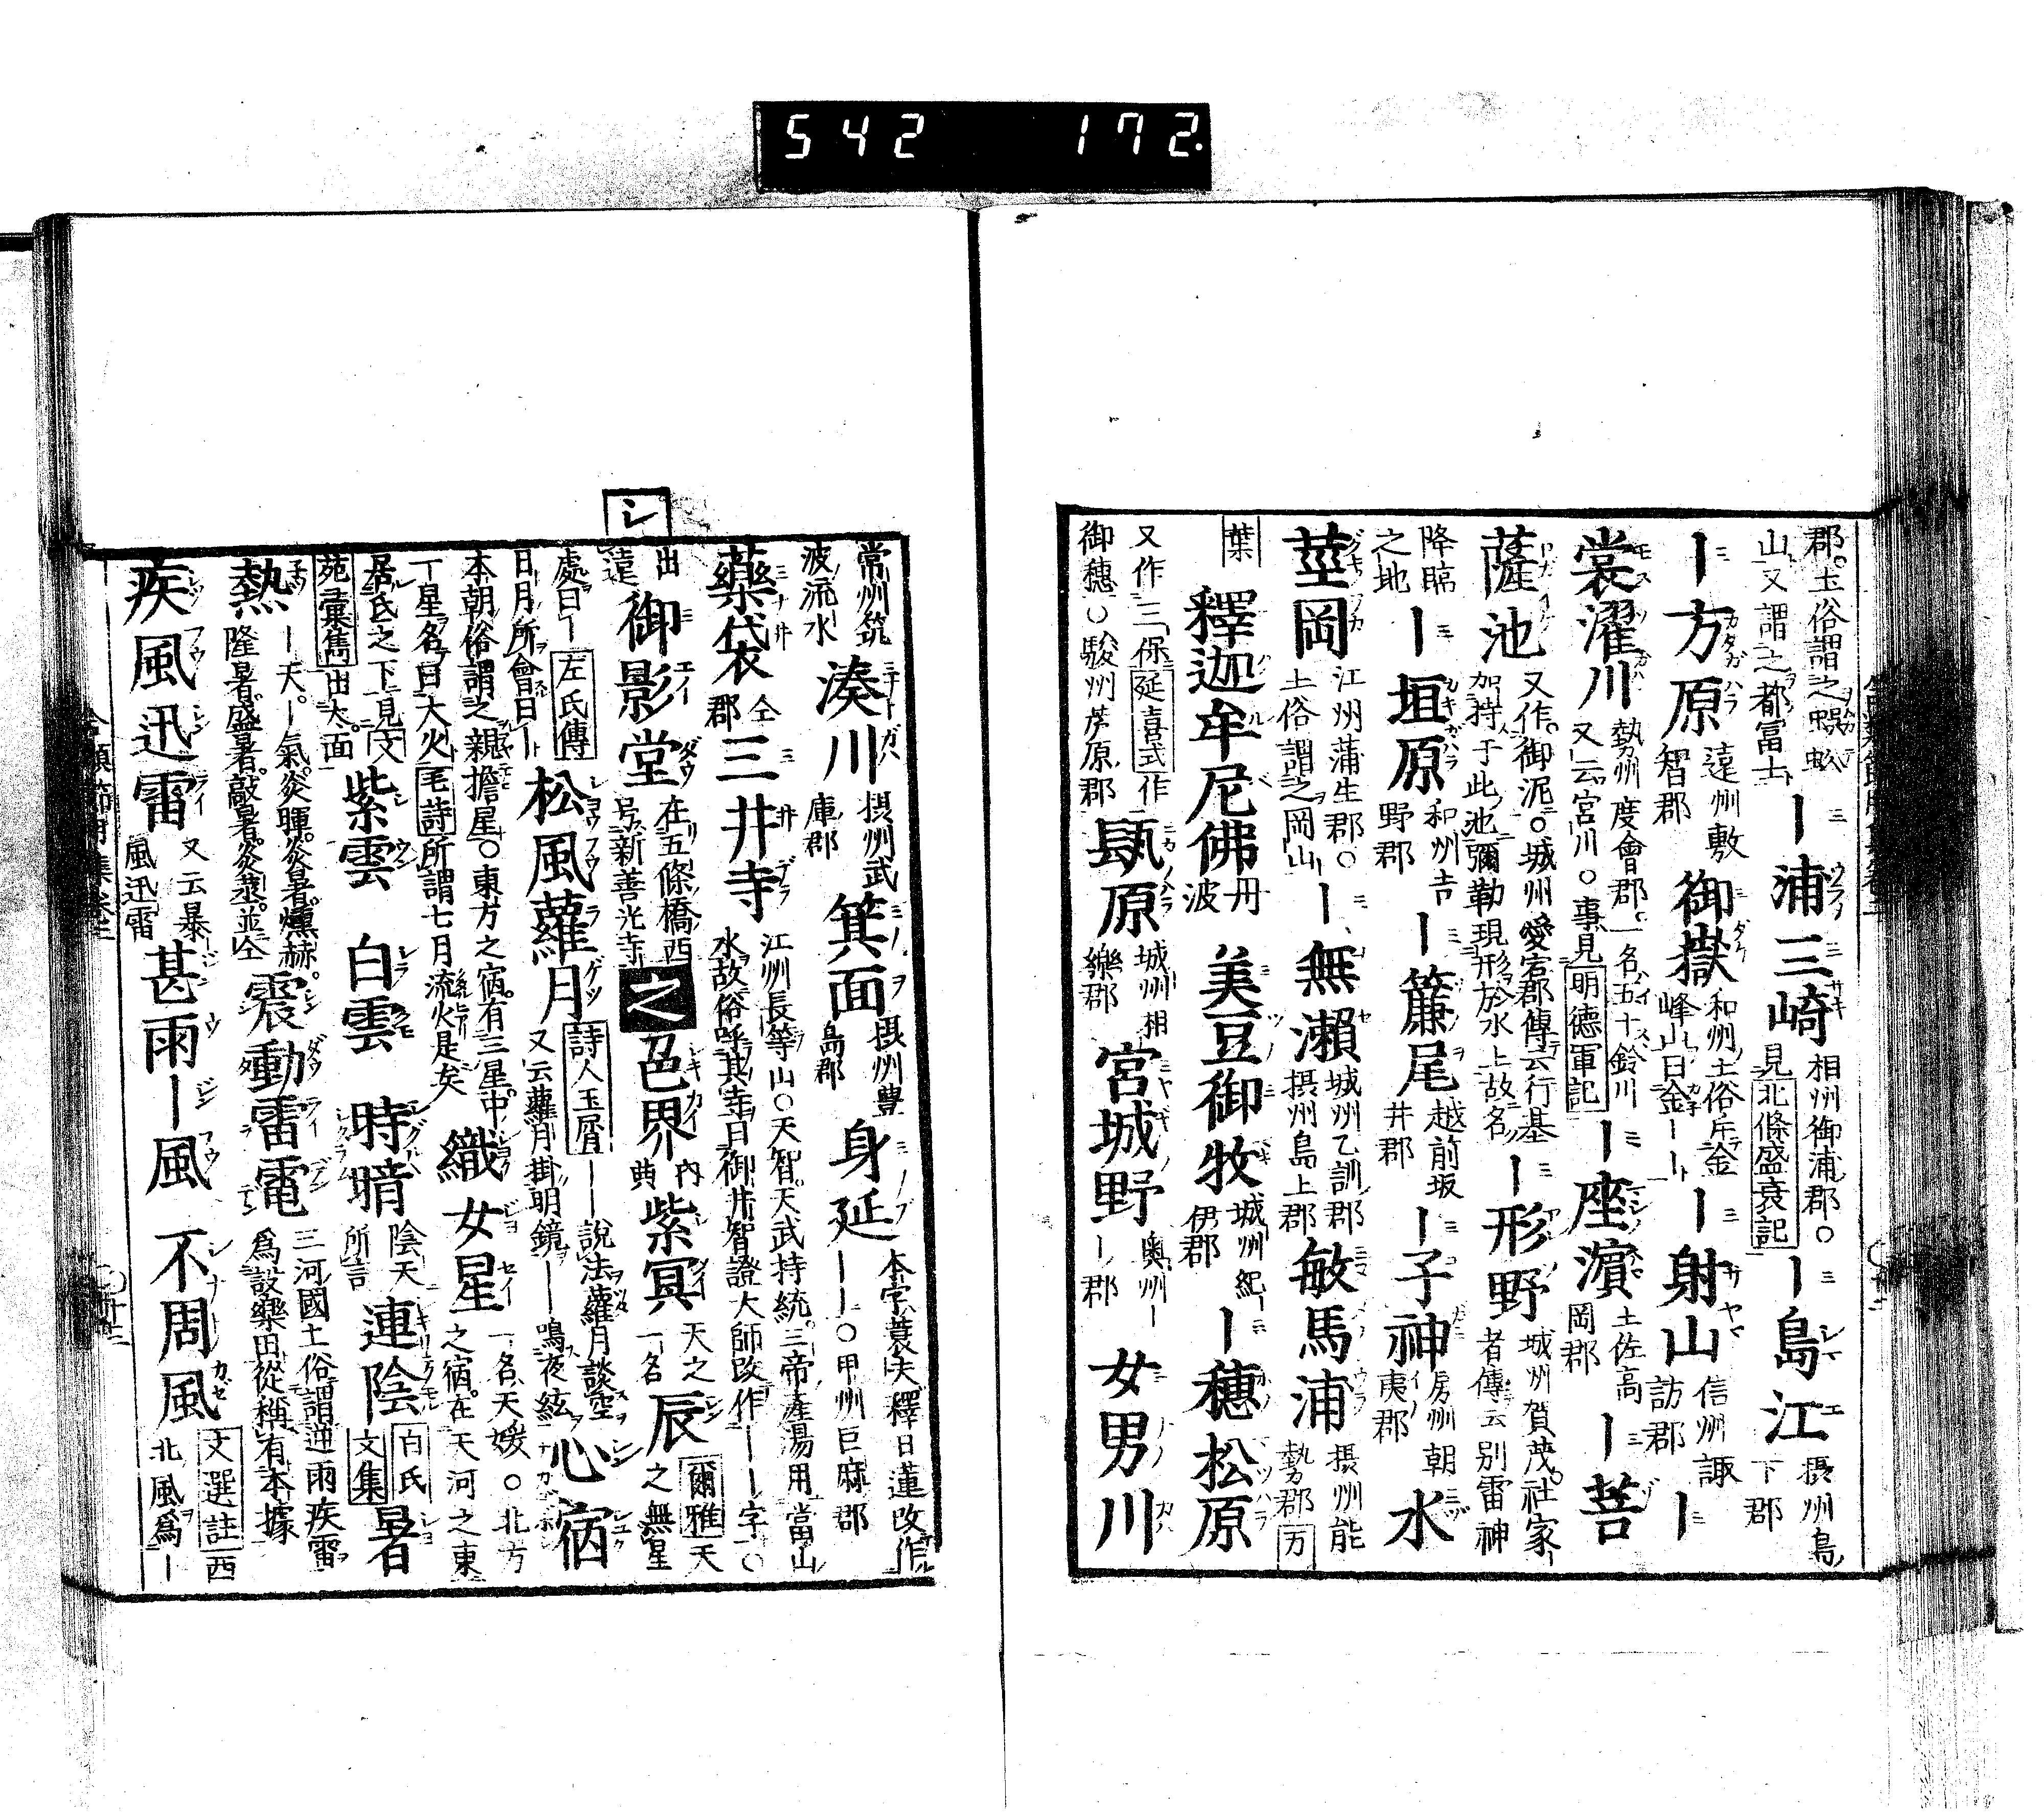 542 172.
郡。土俗謂之蜈蚣
山又謂之都富士 ー浦三崎 相州御浦郡。○
見北條盛衰記 ー島江 摂州島
下郡
ー方原 遠州敷
智郡 御嶽 和州土俗斥金
峰山曰金ーー ー射山 信州諏
訪郡 ー
裳濯川 勢州度會郡。一名五十鈴川
又云宮川。○事見明徳軍記 ー座濵 土佐高
岡郡 ー菩
薩池 又作御泥。○城州愛宕郡傳云行基
加持于此池彌勒現形於水上故名 ー形野 城州賀茂社家
者傳云別雷神
降臨
之地 ー垣原 和州吉
野郡 ー簾尾 越前坂
井郡 ー子神 房州朝
夷郡 水
莖岡 江州蒲生郡○
土俗謂之岡山 ー無瀬 城州乙訓郡
摂州島上郡 敏馬浦 摂州能
勢郡 万
葉 釋迦牟尼佛 丹
波 美豆御牧 城州紀
伊郡 ー穂松原
又作三保延喜式作
御穂○駿州芦原郡 𤭖原 城州相
樂郡 宮城野 奥州ー
ー郡 女男川
常州筑
波流水 湊川 摂州武
庫郡 箕面 摂州豊
島郡 身延 本字蓑夫釋日蓮改作
ーー○甲州巨麻郡
藥袋 仝
郡 三井寺 江州長等山○天智天武持統三帝産湯用當山
水故俗呼其寺曰御井智證大師改作ーー字○
シ
出
遠 御影堂 在五條橋西
号新善光寺 之 色界 内
典 紫冥 天之
一名 辰 爾雅天
之無星
處曰ー左氏傳
日月所會曰ー 松風蘿月 詩人玉屑ーー説法蘿月談空
又云蘿月掛明鏡ー鳴夜絃 心宿
本朝俗謂之親擔星○東方之宿有三星中
丁星名曰大火毛詩所謂七月流火是矣 織女星 一名天媛○北方
之宿在天河之東
居氏之下見文
苑彙雋出大面 紫雲 白雲 時暗 陰天
所言 連陰 白氏
文集 暑
熱 ー天ー氣炎暉炎暑燻赫
隆暑盛暑敲暑炎蒸並仝 震動雷電 三河國土俗謂迎雨疾雷
爲設樂田從稱有本據
疾風迅雷 又云暴
風迅雷 甚雨ー風 不周風 文選註西
北風爲ー